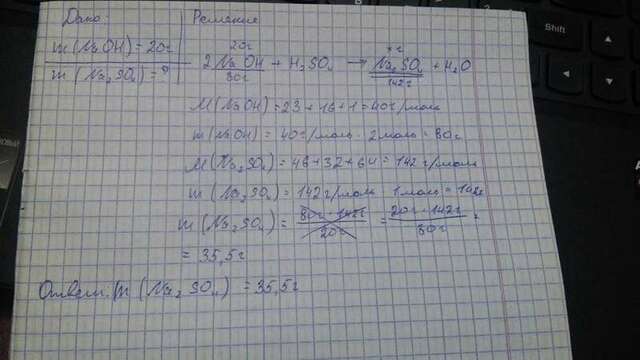 Дано: Решение
m(NaOH) = 20г
m(Na₂SO₄) = ?
20г х г
2NaOH + H₂SO₄ → Na₂SO₄ + H₂O
80г 142г
M(NaOH) = 23 + 16 + 1 = 40г/моль
m(NaOH) = 40г/моль · 2моль = 80г
M(Na₂SO₄) = 46 + 32 + 64 = 142г/моль
m(Na₂SO₄) = 142г/моль · 1моль = 142г
m(Na₂SO₄) = 80г · 142г / 20г = 20г · 142г / 80г =
= 35,5г
Ответ: m(Na₂SO₄) = 35,5г
Shift